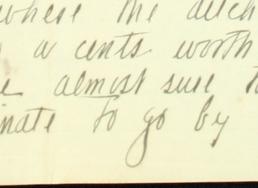 where the ditch
a cents worth
almost sure t
nate to go by